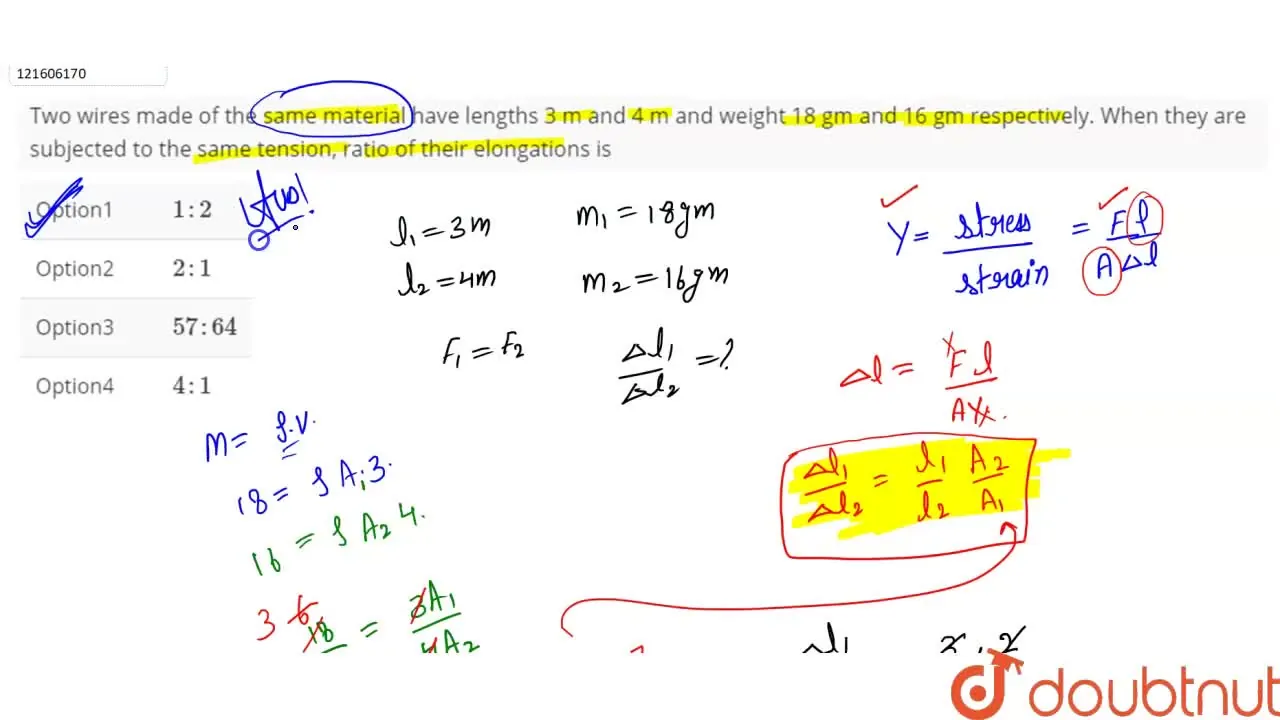 121606170
Two wires made of the same material have lengths 3 m and 4 m and weight 18 gm and 16 gm respectively. When they are
subjected to the same tension, ratio of their elongations is
Option1 1 : 2
Option2 2 : 1
Option3 57 : 64
Option4 4 : 1
l₁ = 3m
m₁ = 18gm
l₂ = 4m
m₂ = 16gm
F₁ = F₂
Δl₁/Δl₂ = ?
Y = stress/strain = Fl/AΔl
Δl = Fl/AY
Δl₁/Δl₂ = l₁/l₂ A₂/A₁
M = ρ.V.
18 = ρA₁3.
16 = ρA₂4.
3 6
18 = 3A₁/4A₂
Δl₁
doubtnut